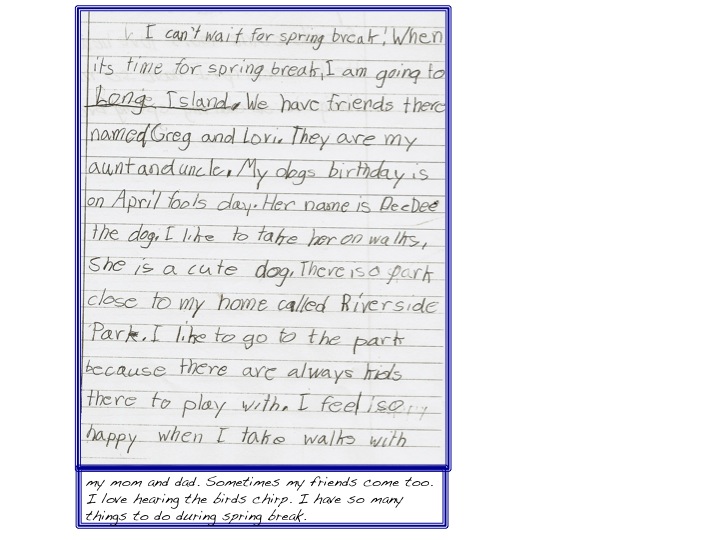 I can't wait for spring break! When
its time for spring break, I am going to
Long Island. We have friends there
named Greg and Lori. They are my
aunt and uncle. My dogs birthday is
on April fools day. Her name is DeeDee
the dog. I like to take her on walks,
She is a cute dog. There is a park
close to my home called Riverside
Park. I like to go to the park
because there are always kids
there to play with. I feel so
happy when I take walks with
my mom and dad. Sometimes my friends come too.
I love hearing the birds chirp. I have so many
things to do during spring break.